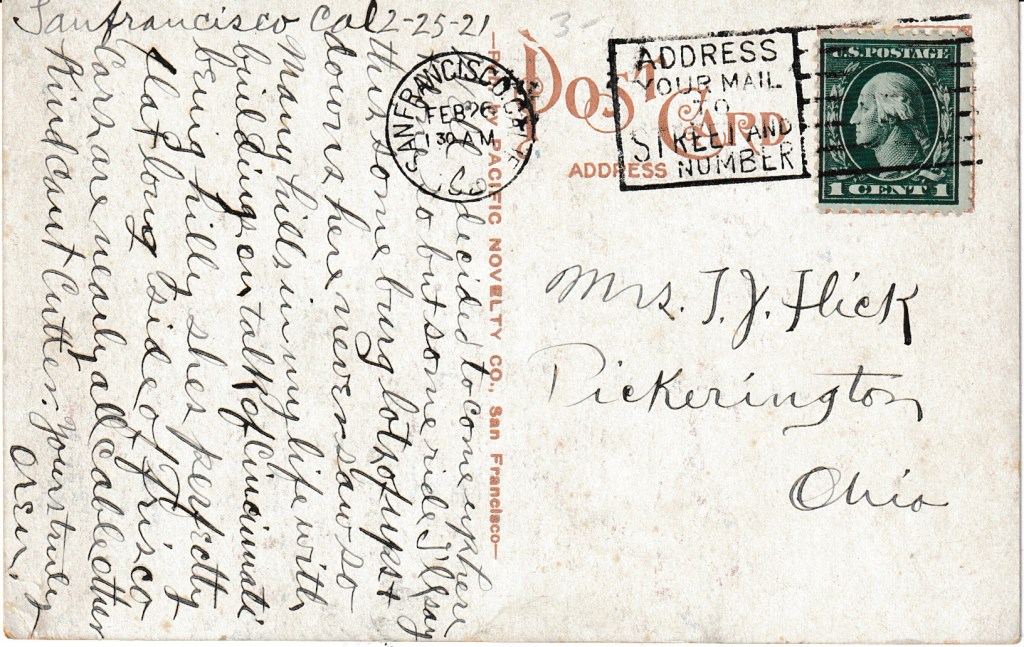 Sanfrancisco Cal 2-25-21
3-
decided to come up here
but some ride I'll say
this some burg lots of ups &
downs here never saw so
Many hills in my life with
buildings on talk of Cincinnati
being hilly shes perfectly
flat long side of Frisco
Cars are nearly all Cable other
Kind cant Cutter. Yours truly
Oren.
BY PACIFIC NOVELTY CO., San Francisco—
SAN FRANCISCO, CAL
FEB 26
1 30 AM
POST CARD
ADDRESS
ADDRESS
YOUR MAIL
TO
STREET AND
NUMBER
U.S. POSTAGE
1 CENT 1
Mrs. T. J. Flick
Pickerington
Ohio